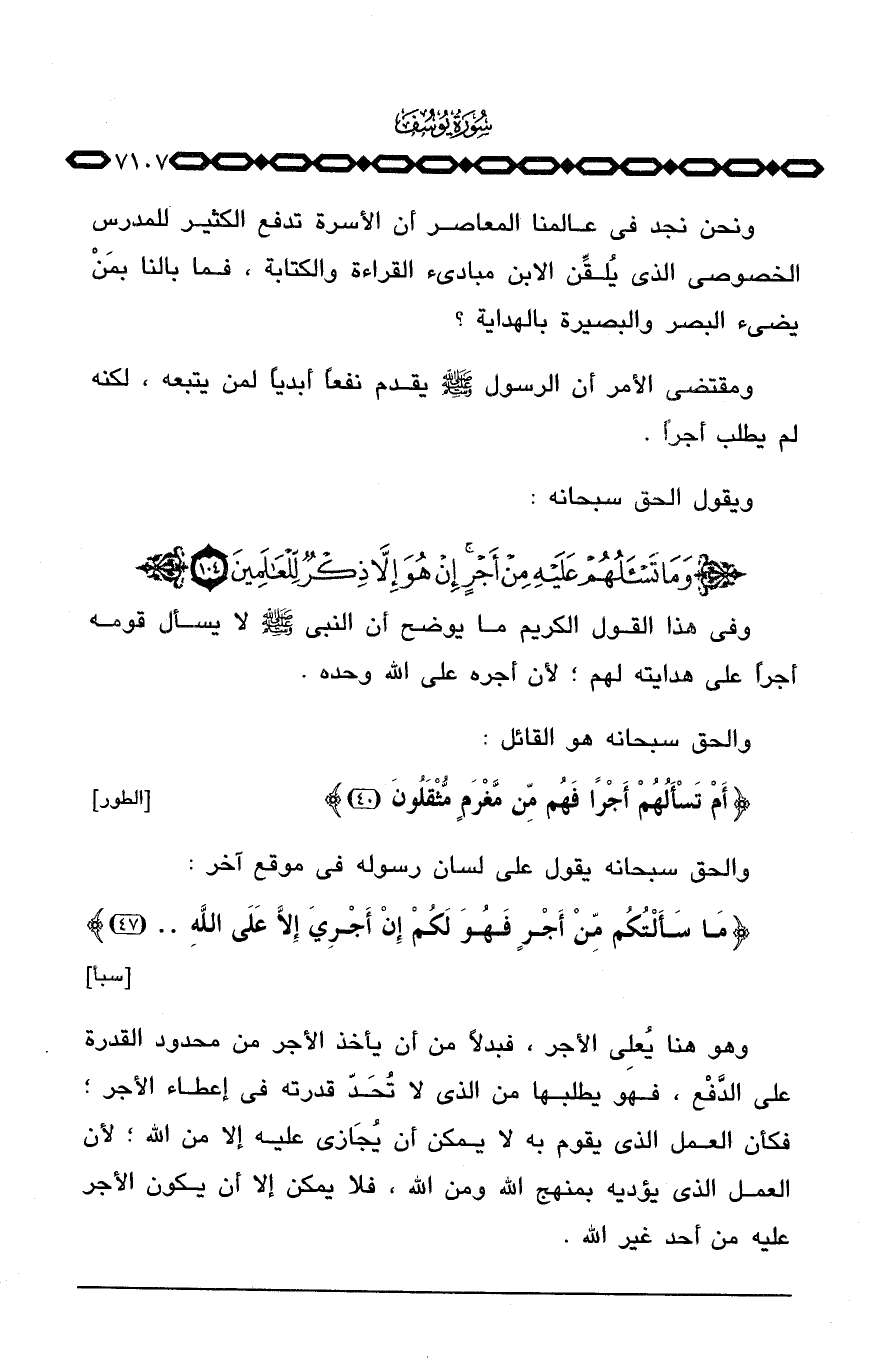 سُورَةُ يُوسُفَ
٧١٠٧
ونحن نجد فى عالمنا المعاصر أن الأسرة تدفع الكثير للمدرس
الخصوصى الذى يُلقِّن الابن مبادىء القراءة والكتابة ، فما بالنا بمَنْ
يضىء البصر والبصيرة بالهداية ؟
ومقتضى الأمر أن الرسول ﷺ يقدم نفعاً أبدياً لمن يتبعه ، لكنه
لم يطلب أجراً .
ويقول الحق سبحانه :
وَمَا تَسْـَٔلُهُمْ عَلَيْهِ مِنْ أَجْرٍ ۚ إِنْ هُوَ إِلَّا ذِكْرٌ لِّلْعَٰلَمِينَ ١٠٤
وفى هذا القول الكريم ما يوضح أن النبى ﷺ لا يسأل قومه
أجراً على هدايته لهم ؛ لأن أجره على الله وحده .
والحق سبحانه هو القائل :
﴿ أَمْ تَسْأَلُهُمْ أَجْرًا فَهُم مِّن مَّغْرَمٍ مُّثْقَلُونَ (٤٠) ﴾ [الطور]
والحق سبحانه يقول على لسان رسوله فى موقع آخر :
﴿ مَا سَأَلْتُكُم مِّنْ أَجْرٍ فَهُوَ لَكُمْ إِنْ أَجْرِيَ إِلاَّ عَلَى اللَّهِ .. (٤٧) ﴾
[سبأ]
وهو هنا يُعلِى الأجر ، فبدلاً من أن يأخذ الأجر من محدود القدرة
على الدَّفْع ، فهو يطلبها من الذى لا تُحَدّ قدرته فى إعطاء الأجر ؛
فكأن العمل الذى يقوم به لا يمكن أن يُجَازى عليه إلا من الله ؛ لأن
العمل الذى يؤديه بمنهج الله ومن الله ، فلا يمكن إلا أن يكون الأجر
عليه من أحد غير الله .